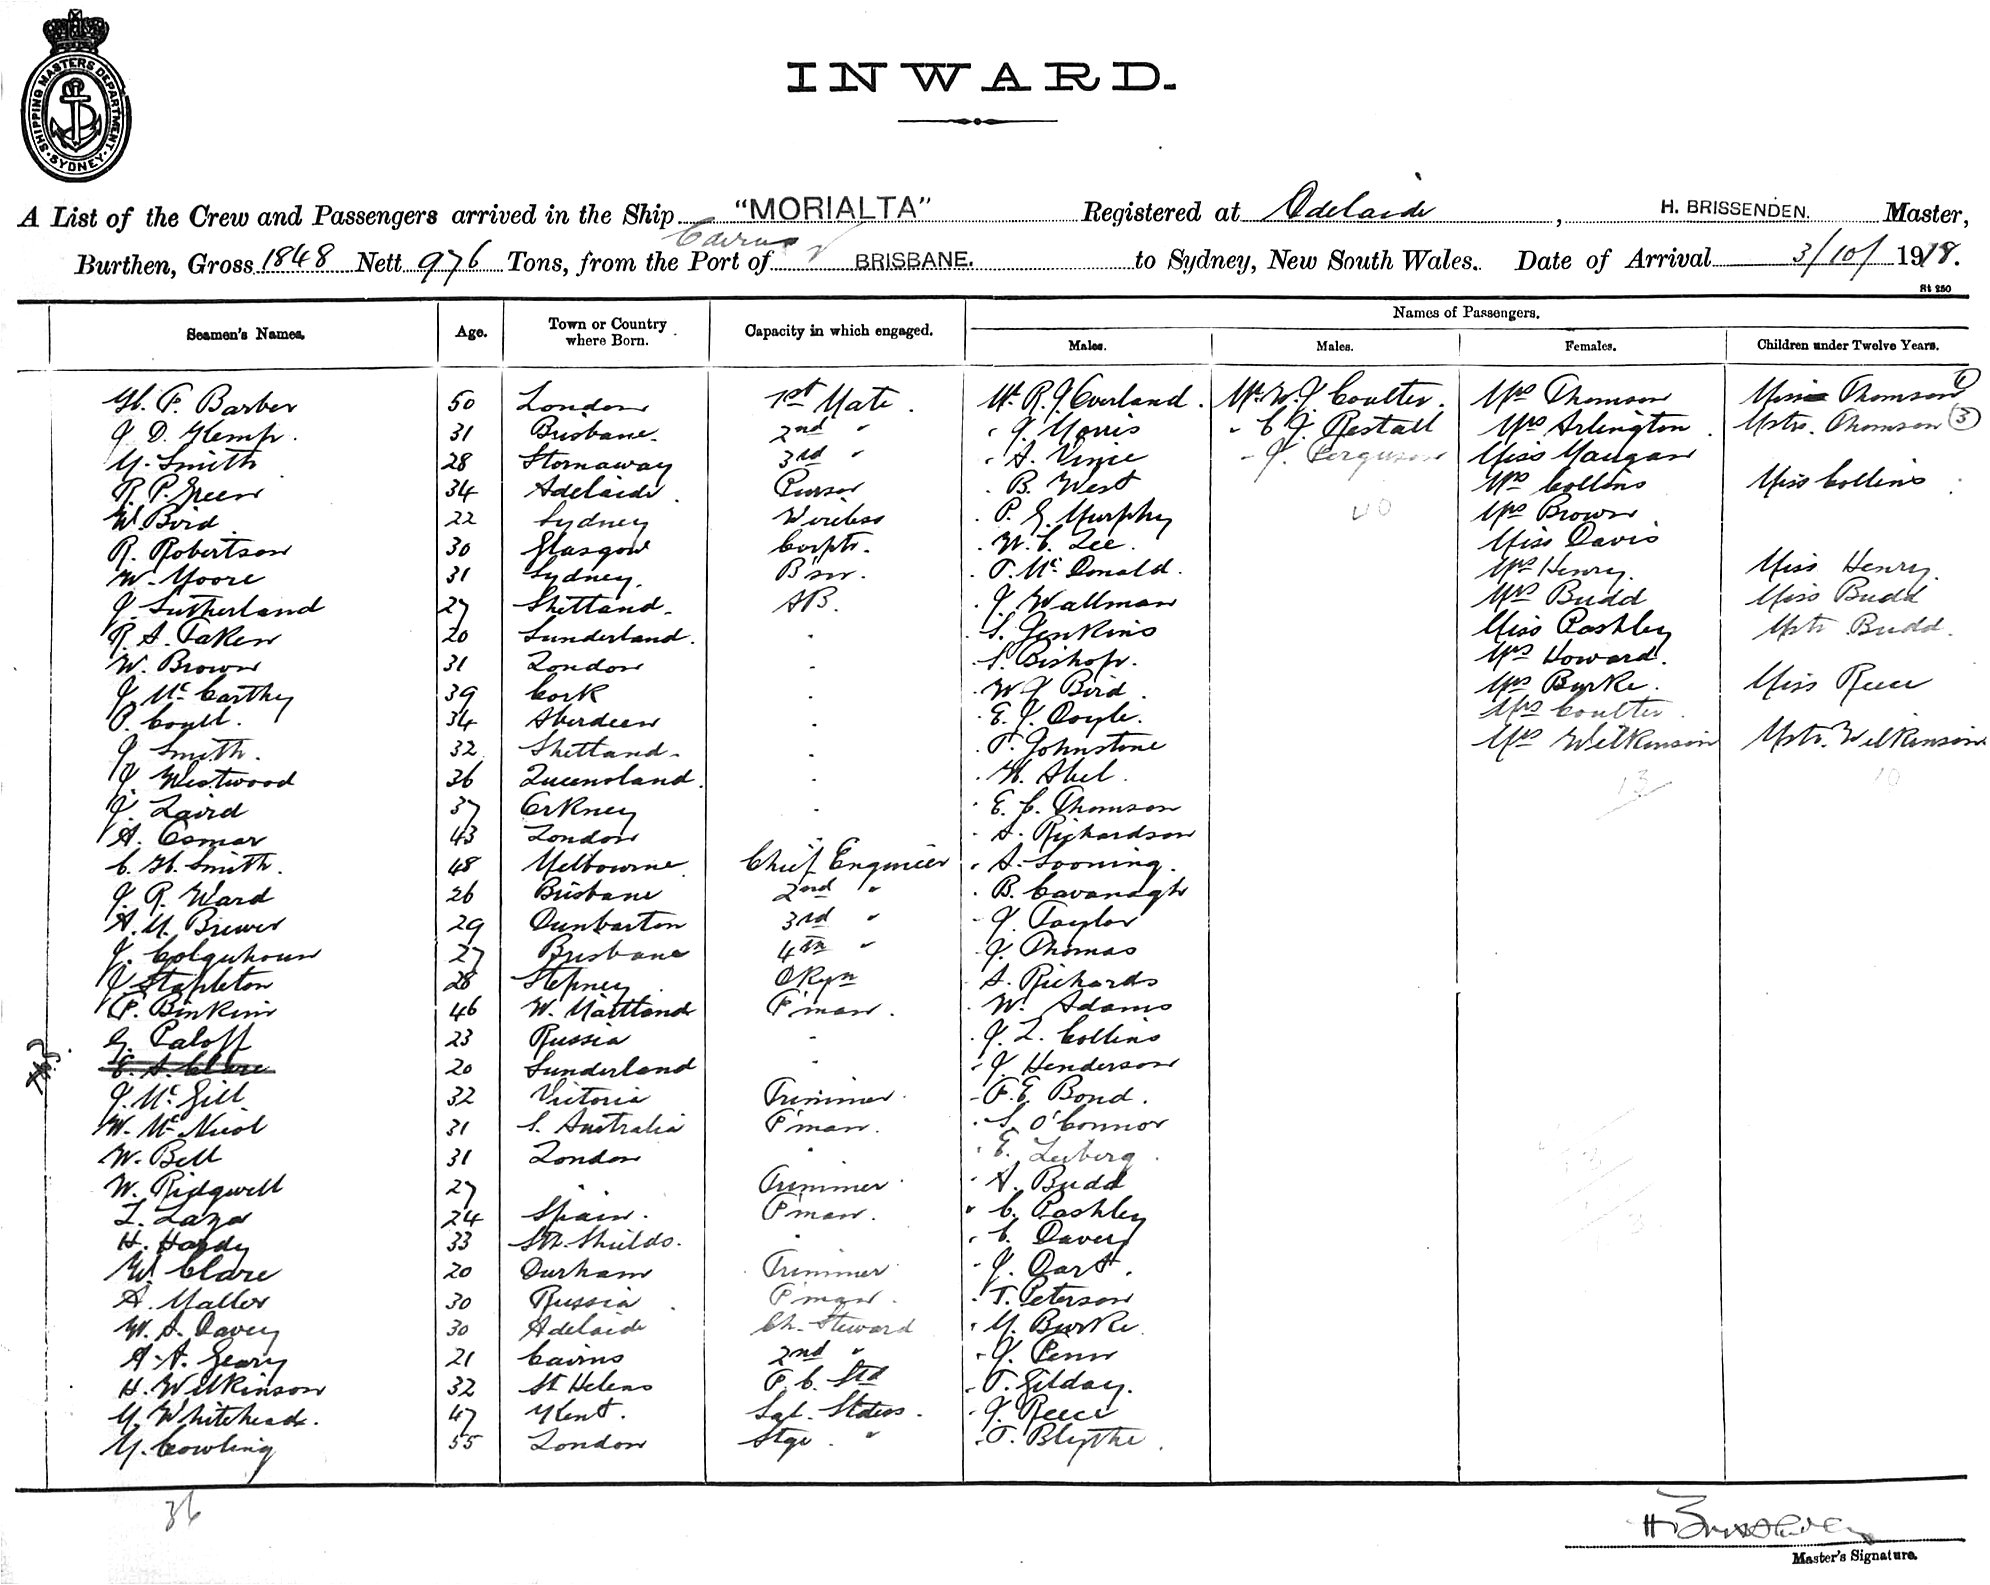 SHIPPING MASTERS DEPARTMENT.
SYDNEY
INWARD.
A List of the Crew and Passengers arrived in the Ship "MORIALTA" Registered at Adelaide, H. BRISSENDEN. Master,
Cairns
Burthen, Gross 1848 Nett 976 Tons, from the Port of BRISBANE. to Sydney, New South Wales. Date of Arrival 3/10/1918.
St 250
Names of Passengers.
Seamen's Names. Age. Town or Country where Born. Capacity in which engaged. Males. Males. Females. Children under Twelve Years.
H. F. Barber 50 London 1st Mate. Mr. R. J. Overland. Mr. W. J. Coulter. Mrs Thomson Miss Thomson
J. D. Kemp. 31 Brisbane. 2nd " " J. Morris " C. J. Restall Mrs Arlington. Mstr. Thomson (3)
M. Smith 28 Stornaway 3rd " " A. Vince " J. Ferguson Miss Maugan
R. P. Green 34 Adelaide. Purser " B. West Mrs Collins Miss Collins
W. Bird 22 Sydney Wireless " P. G. Murphy 40 Mrs Brown
R. Robertson 30 Glasgow Corptr. " W. C. Lee. Miss Davis
W. Moore 31 Sydney. B'sn. " T. McDonald. Mrs Henry. Miss Henry.
J. Sutherland 27 Shetland. AB. " J. Wallman Mrs Budd Miss Budd
R. A. Faken 20 Sunderland. " " S. Jenkins Miss Pashley Mstr Budd.
W. Brown 31 London " " S. Bishop. Mrs Howard.
J. McCarthy 39 Cork " " W. J. Bird. Mrs Burke. Miss Reece
P. Coull. 34 Aberdeen " " E. J. Doyle. Mrs Coulter.
J. Smith. 32 Shetland. " " T. Johnstone Mrs Wilkinson Mstr. Wilkinson
J. Westwood 36 Queensland. " " H. Abel. 13 10
J. Laird 37 Orkney " " E. C. Thomson
A. Osmar 43 London " A. Richardson
C. H. Smith. 48 Melbourne Chief Engineer " A. Sooning.
J. R. Ward 26 Brisbane 2nd " " B. Cavanagh
A. M. Brewer 29 Dunbarton 3rd " " J. Taylor
J. Colquhoun 27 Brisbane 4th " " J. Thomas
J. Stapleton 28 Stepney Dkyn " A. Richards
P. Binkin 46 W. Maitland F'man. " W. Adams
G. Paloff 23 Russia " " J. L. Collins
C. A. Clare 20 Sunderland " " J. Henderson
J. McGill 32 Victoria Trimmer. " F. E. Bond.
W. McNicol 31 S. Australia F'man. " S. O'Connor
W. Bell 31 London " " E. Leiberg.
W. Ridgwell 27 " Trimmer " A. Budd
L. Laza 24 Spain. F'man. " C. Pashley
H. Hardy 33 Sth. Shields. " " C. Davey
W. Clare 20 Durham Trimmer " J. Dart.
A. Maller 30 Russia. F'man. " T. Peterson
W. A. Davey 30 Adelaide Ch. Steward " M. Burke
A. A. Geary 21 Cairns 2nd " " J. Penn
H. Wilkinson 32 St Helens F. C. Std " T. Gilday.
M. Whitehead. 47 Kent. Sal. Stdess. " J. Reece
M. Cowling 55 London Stge. " " T. Blythe.
36
H Brissenden
Master's Signature.